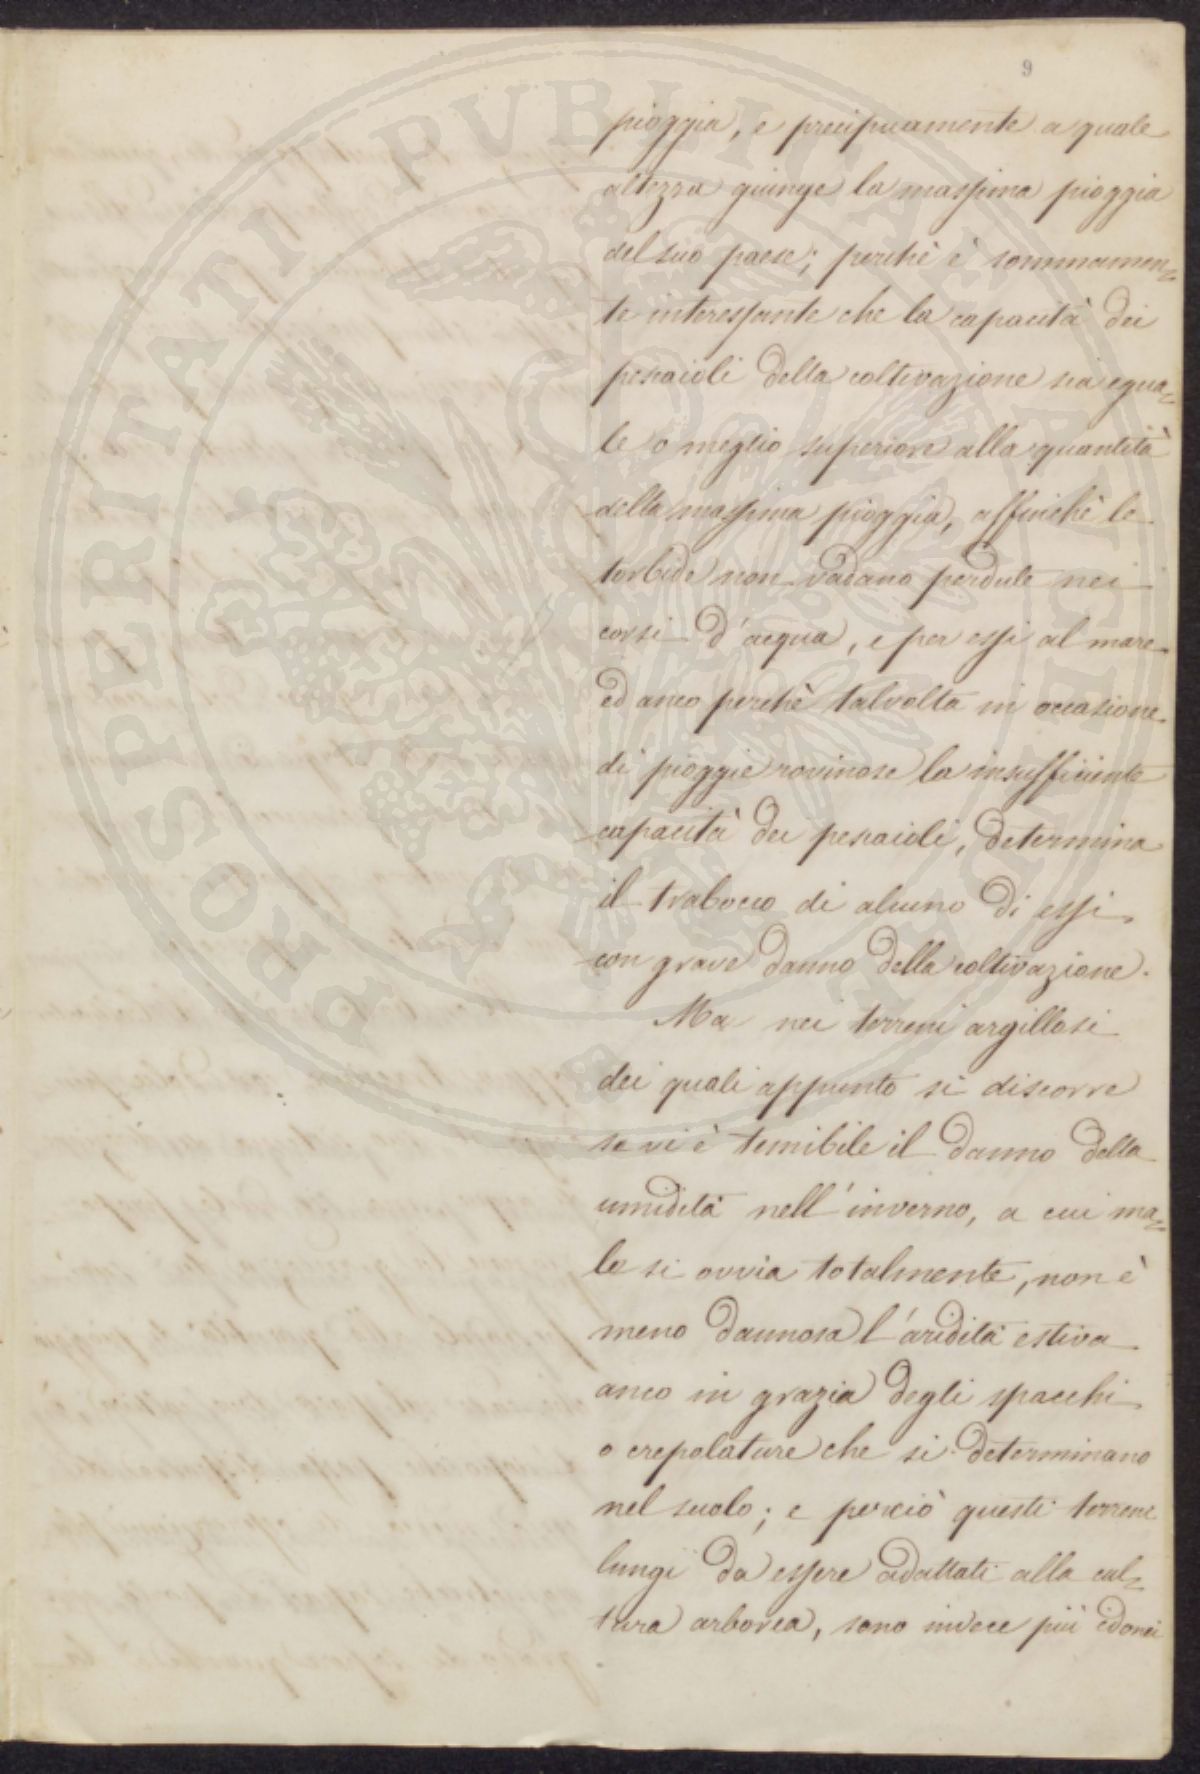 9
pioggia, e precipuamente a quale
altezza giunge la massima pioggia
del suo paese; perchè è sommamen=
te interessante che la capacità dei
pescaioli della coltivazione sia egua=
le o meglio superiore alla quantità
della massima pioggia, affinchè le
torbide non vadano perdute nei
corsi d'acqua, e per essi al mare
ed anco perchè talvolta in occasione
di pioggie rovinose la insufficiente
capacità dei pescaioli, determina
il trabocco di alcuno di essi
con grave danno della coltivazione.
Ma nei terreni argillosi
dei quali appunto si discorre
se vi è temibile il danno della
umidità nell'inverno, a cui ma=
le si ovvia totalmente, non è
meno dannosa l'aridità estiva
anco in grazia degli spacchi
o crepolature che si determinano
nel suolo; e perciò questi terreni
lungi da essere adattati alla cul=
tura arborea, sono invece più idonei
PROSPERITATI PUBLICAE AUGENDAE